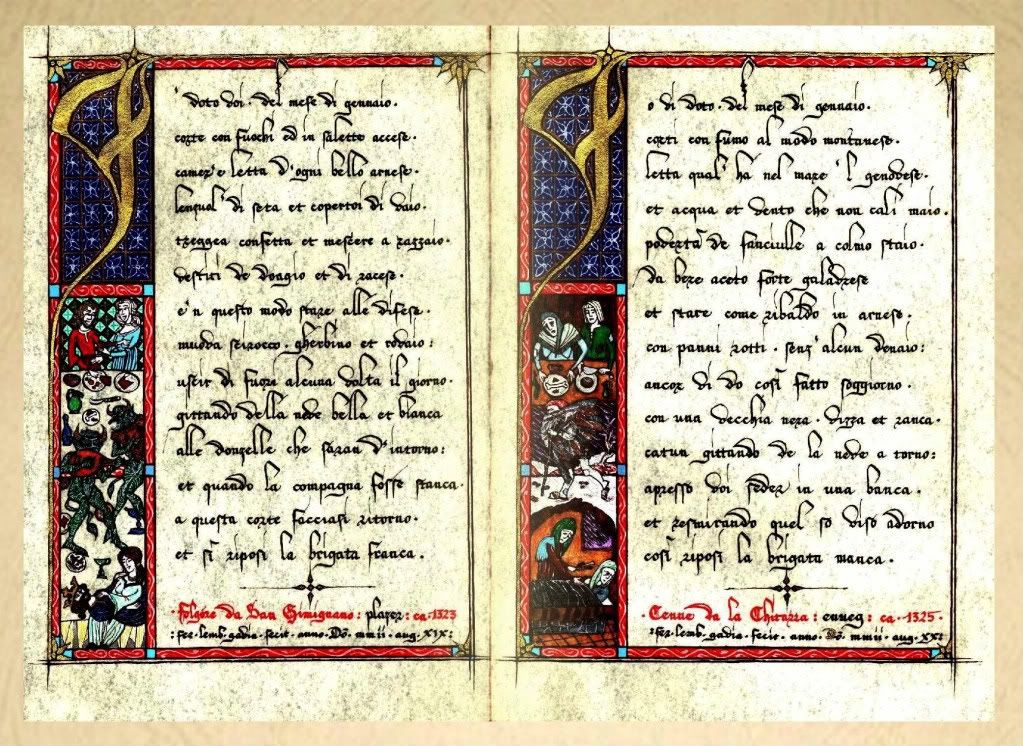 I' doto voi · del mese di gennaio ·
corte con fuochi ed in salette accese ·
camer'e letta d'ogni bello arnese ·
lenzuol' di seta et copertoi di vaio ·
treggea confetta et mescere a razzaio ·
vestiti de doagio et di racese ·
e 'n questo modo stare alle difese ·
muova scirocco · gherbino et rovaio :
uscir di fuori alcuna volta il giorno ·
gittando della neve bella et bianca
alle donzelle che saran d'intorno :
et quando la compagna fosse stanca ·
a questa corte facciasi ritorno ·
et sì riposi la brigata franca ·
· Folgore da San Gimignano : plazer : ca · 1323
: fer · lemb · gadia · fecit · anno · Dō · mmii · aug · XIX :
Io vi doto · del mese di gennaio ·
corti con fumo al modo montanese ·
letta qual' ha nel mare 'l genovese ·
et acqua et vento che non cali maio ·
povertà de fanciulle a colmo staio ·
da bere aceto forte galavrese
et stare come ribaldo in arnese ·
con panni rotti · senz'alcun denaio :
ancor vi do così fatto soggiorno ·
con una vecchia nera · vizza et ranca ·
catun gittando de la neve a torno :
apresso voi seder in una banca ·
et resmirando quel so viso adorno
così riposi la brigata manca ·
· Cenne da la Chitarra : enueg : ca · 1325 ·
: fer · lemb · gadia · fecit · anno · Dō · mmii · aug · XX :